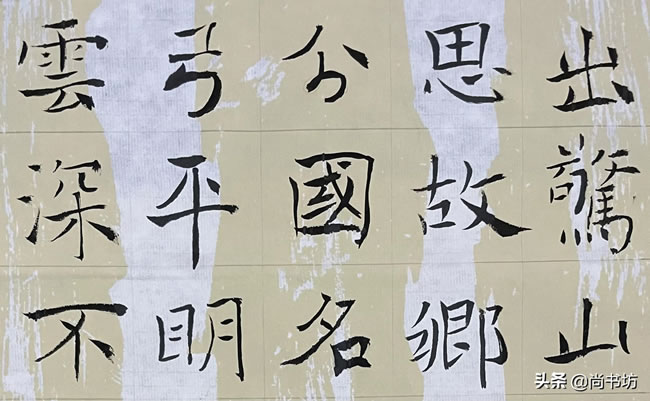 出驚山
思故鄉
分國名
弓平明
雲深不
头条 @尚书坊